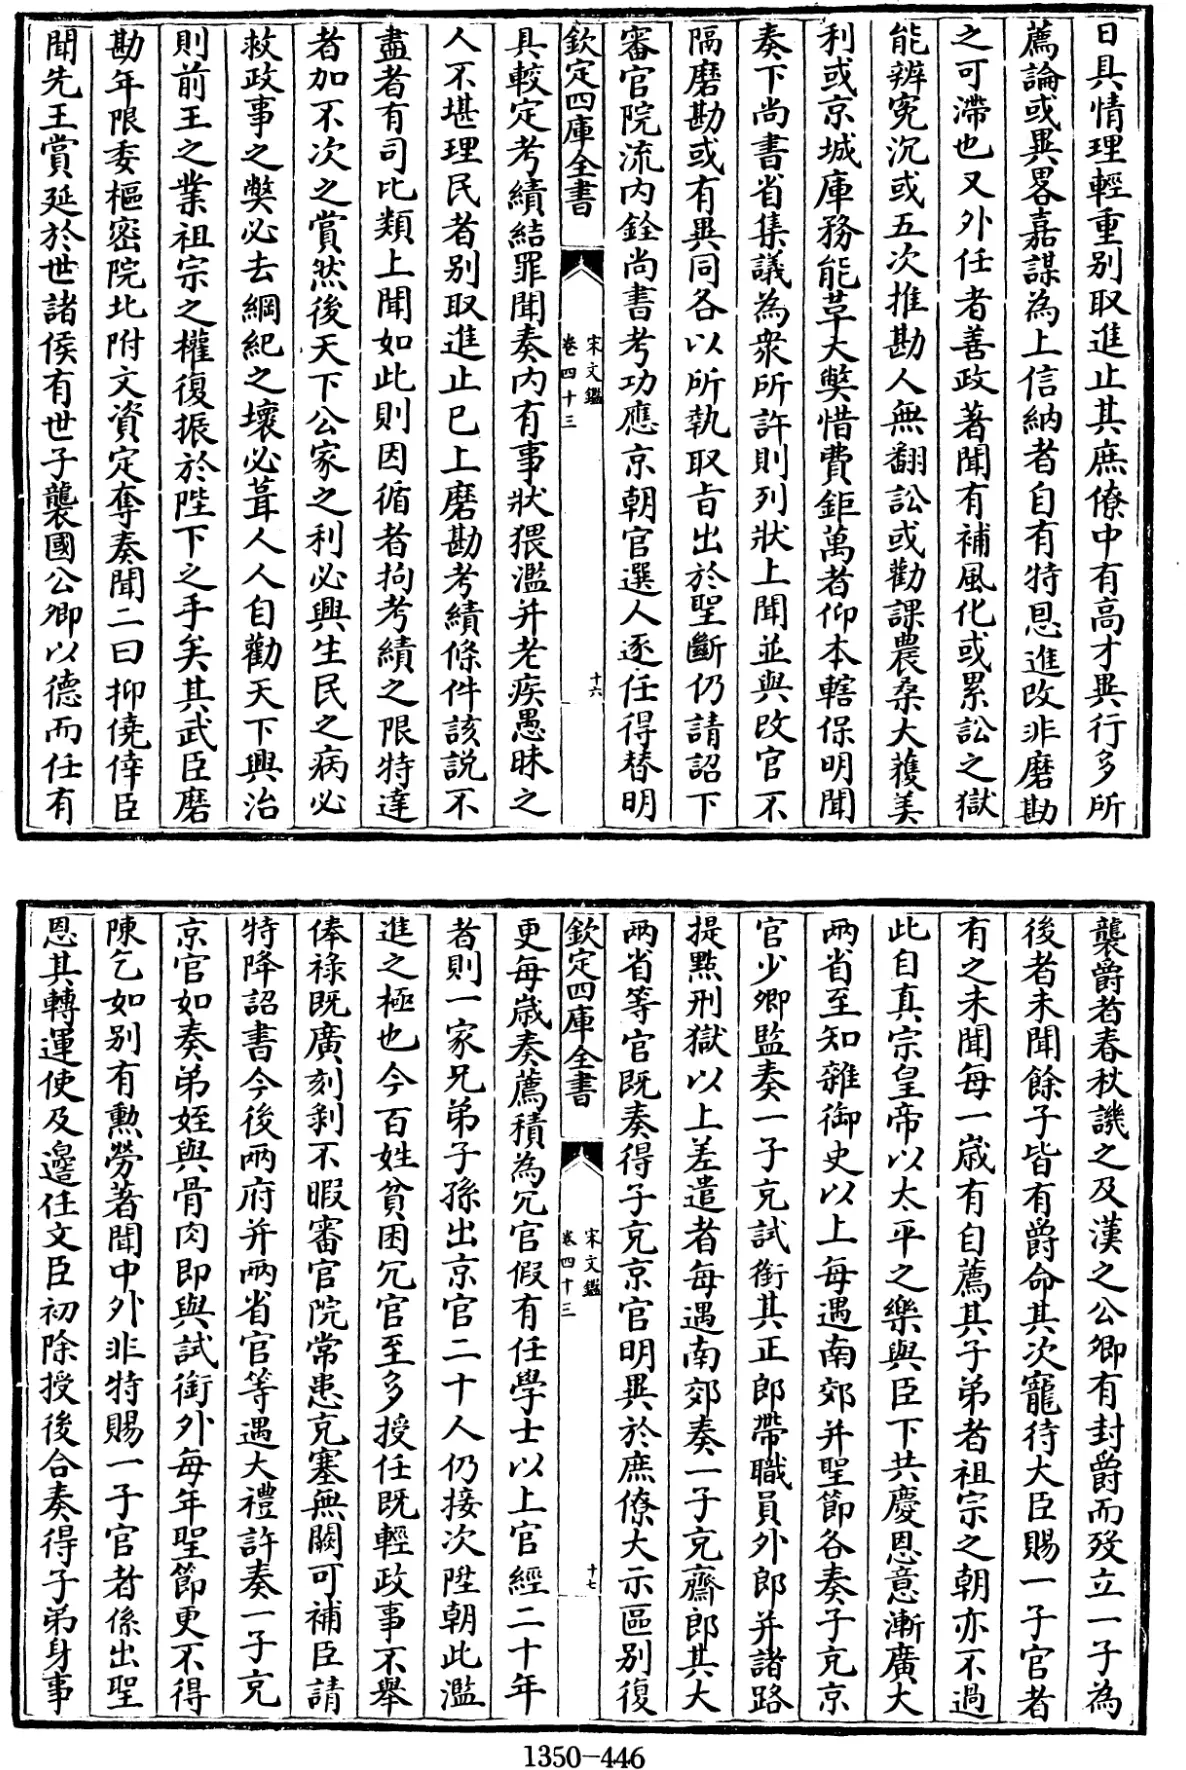 日具情理輕重别取進止其庶僚中有高才異行多所
薦論或異畧嘉謀為上信納者自有特恩進改非磨勘
之可滯也又外任者善政著聞有補風化或累訟之獄
能辨寃沉或五次推勘人無翻訟或勸課農桑大獲美
利或京城庫務能革大弊惜費鉅萬者仰本轄保明聞
奏下尚書省集議為衆所許則列狀上聞並與改官不
隔磨勘或有異同各以所執取旨出於聖斷仍請詔下
審官院流内銓尚書考功應京朝官選人逐任得替明
欽定四庫全書
宋文鑑
卷四十三
十六
具較定考績結罪聞奏内有事狀猥濫并老疾愚昧之
人不堪理民者别取進止已上磨勘考績條件該説不
盡者有司比類上聞如此則因循者拘考績之限特達
者加不次之賞然後天下公家之利必興生民之病必
救政事之弊必去綱紀之壞必葺人人自勸天下興治
則前王之業祖宗之權復振於陛下之手矣其武臣磨
勘年限委樞密院比附文資定奪奏聞二曰抑僥倖臣
聞先王賞延於世諸侯有世子襲國公卿以德而任有
襲爵者春秋譏之及漢之公卿有封爵而殁立一子為
後者未聞餘子皆有爵命其次寵待大臣賜一子官者
有之未聞每一歳有自薦其子弟者祖宗之朝亦不過
此自真宗皇帝以太平之樂與臣下共慶恩意漸廣大
兩省至知雜御史以上每遇南郊并聖節各奏子充京
官少卿監奏一子充試銜其正郎帶職員外郎并諸路
提點刑獄以上差遣者每遇南郊奏一子充齋郎其大
兩省等官既奏得子充京官明異於庶僚大示區别復
欽定四庫全書
宋文鑑
卷四十三
十七
更每歳奏薦積為冗官假有任學士以上官經二十年
者則一家兄弟子孫出京官二十人仍接次陞朝此濫
進之極也今百姓貧困冗官至多授任既輕政事不舉
俸禄既廣刻剥不暇審官院常患充塞無闕可補臣請
特降詔書今後兩府并兩省官等遇大禮許奏一子充
京官如奏弟姪與骨肉即與試銜外每年聖節更不得
陳乞如别有勲勞著聞中外非特賜一子官者係出聖
恩其轉運使及邊任文臣初除授後合奏得子弟身事
1350-446